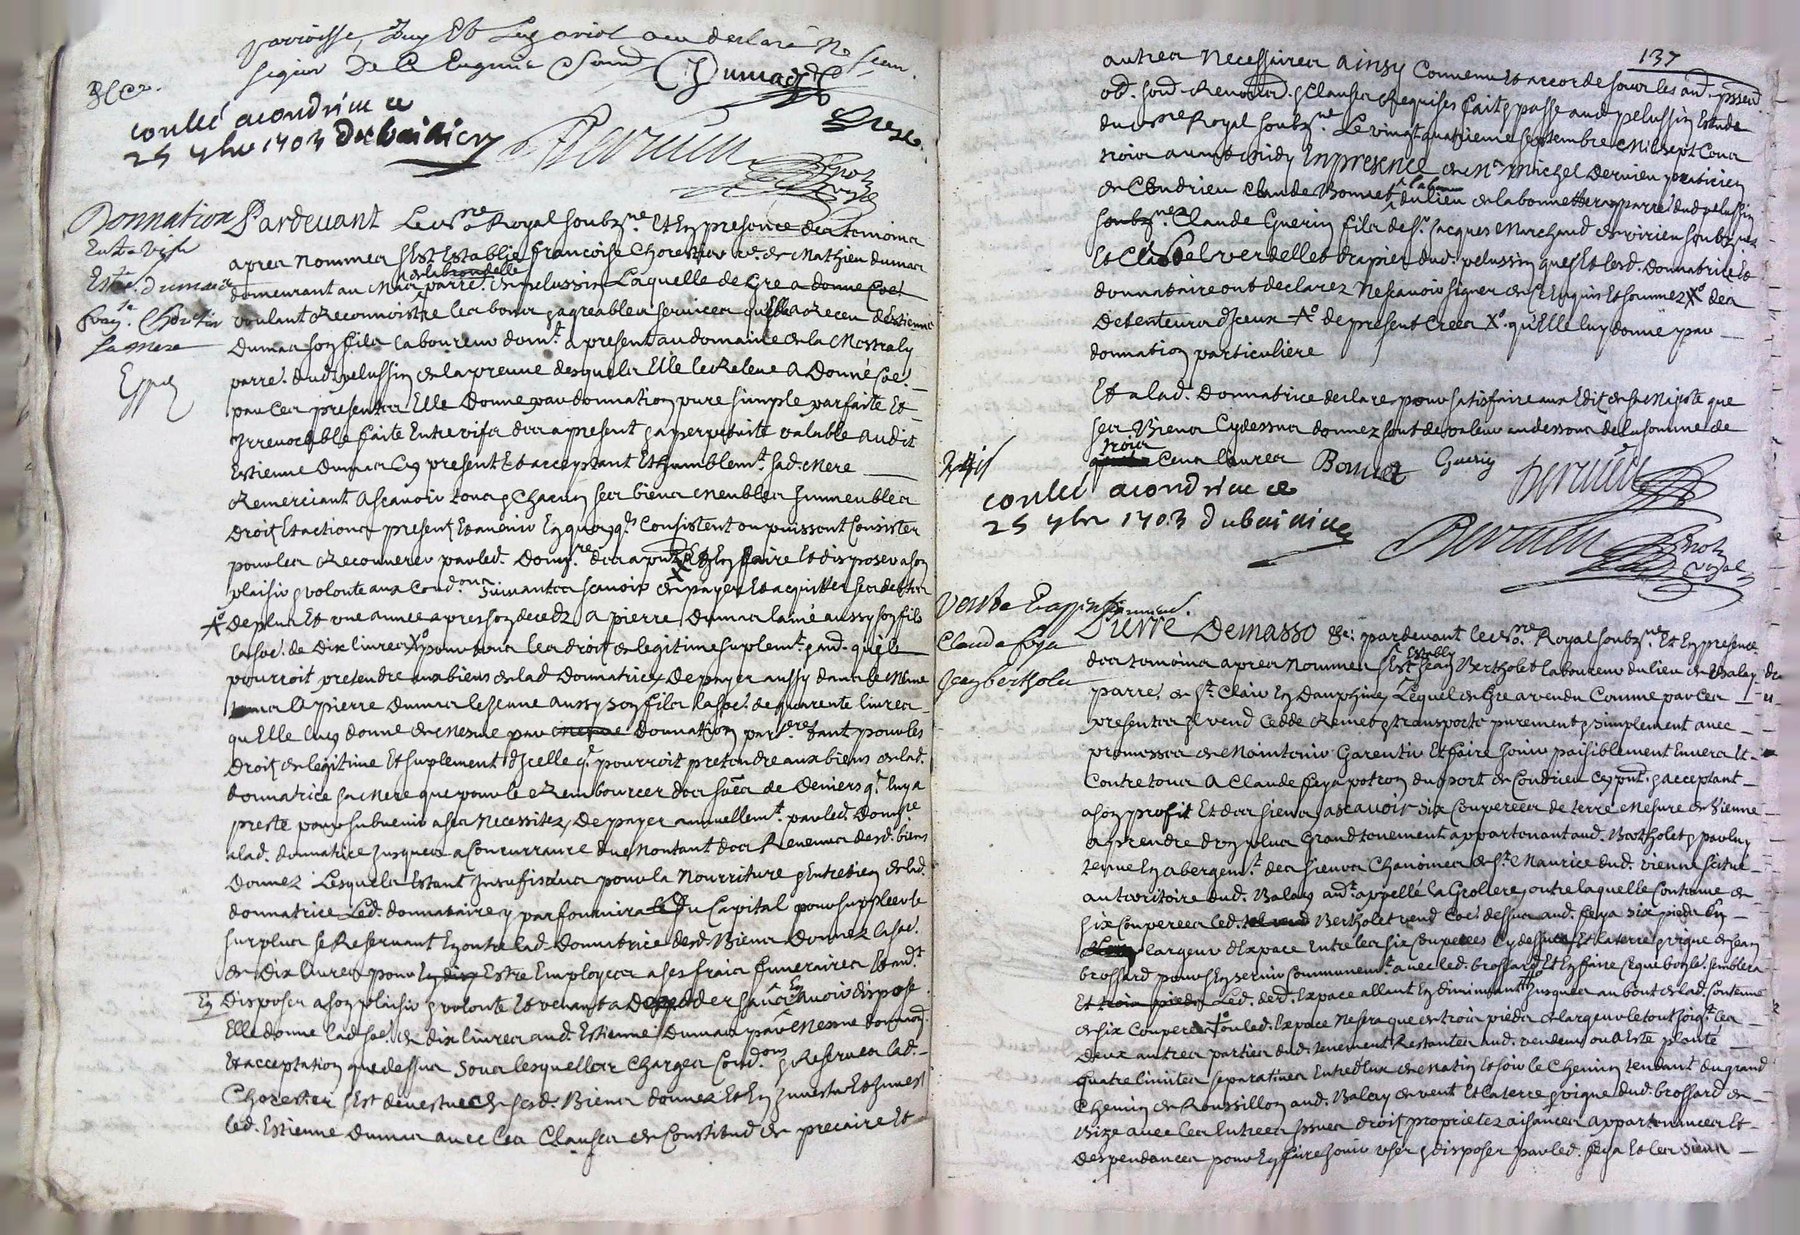 parroisse, Juy Et Luy ariol a eu declaré Ne scau.
signer De Ce Enquis & Somé Dumas
&c.
conllé acondrieu ce
25 7bre 1703 Dubainien Pervieu Not royal
Donnation
Entre vifs
Este. dumas
fran.se Chorestier
sa mere
Expé
Pardevant Le no.re Royal soubz.né Et En presence des temoins
apres nommes s'Est Establie françoise Chorestier ve. de Mathieu dumas
demeurant au Mas de la bourdelle parre. de pelussin Laquelle de Gre a donne Coe.
voulant Reconnoistre les bons & agreables services quElle a Receu dEstienne
Dumas son fils laboureur dem.t a present au domaine de la Mestraly
parre. dud. pelussin de la preuve desquels Elle le Releve A Donné Coe.
par Ces presentes Elle Donne par donnation pure simple parfaite Et
Irrevocable faite Entre vifs des a present & a perpetuité valable audit
Estienne Dumas Cy present Et acceptant Et humblem.t sad. Mere
Remerciant Ascavoir tous & Chacun ses biens Meubles Immeubles
Droits Et actions presents Et avenir En quoy qls. Consistent ou puissent Consister
pour les Recouvrer par led. Donn.re des a pnt. Et En faire Et disposer a son
plaisir & volonte aux Cond.ons suivantes scavoir de payer Et acquitter ses debtes
X° De plus Et une année apres son decedz A pierre Dumas lainé aussy son fils
la soe. de Dix livres X° pour tous les droits de legitime suplem.t & aud. quil
pourroit pretendre aux biens de lad. Donnatrice, De payer aussy dans le Mesme
temps A pierre Dumas le Jeune aussy son fils la soe. de quarente livres
quElle luy donne de Mesme par Donnation par.re tant pour les
Droits de legitime Et suplement d'Jcelle q.l pourroit pretendre aux biens de lad.
donnatrice sa Mere que pour le Rembourcer des soes. de Deniers q.l luy a
presté pour subvenir a ses Necessitez, De payer annuellem.t par led. Donn.re
a lad. donnatrice Jusques a Concurrance du Montant des Revenus desd. biens
Donnez Lesquels Estant Insufisans pour la Nourriture & Entretien de lad.
donnatrice Led. donnataire y parfournira Du Capital pour suppleer le
surplus se Reservant En outre lad. Donnatrice desd. Biens Donnez la soe.
de Dix livres pour Estre Employees a ses fraix funeraires Et aud.t
En Disposer a son plaisir & volonte Et venant a Deceder sans En avoir disposé
Elle donne lad. soe. de dix livres aud. Estienne Dumas par Mesme donnaon.
Et acceptation que dessus Sous lesquelles Charges Cond.ons & Reserves lad.
Chorestier s'Est devestue de sesd. Biens donnez Et En Investa Et Invest
led. Estienne Dumas avec les Clauses de Constitud. de precaire Et
137
autres Necessaires ainsy Convenu Et accordé sous les aud. pssed.
ob. soub. Renon. & Clauses Requises fait & passe aud. pelussin Estude
du no.re Royal soubz.né Le vingt quatrieme septembre Mil sept Cens
trois avant midy En presence de M.e Michel Dervieu praticien
de Condrieu Claude Bonnet du lieu de la bonnetterre parre. dud. pelussin
soubz.né Claude Guerin fils de S.r Jacques Marchand de virieu soubz.nez
Et Claude verdellet drapier dud. pelussin que Et lesd. Donnatrice Et
donnataire ont declarez Ne scavoir signer de ce Enquis Et sommez X° des
Detenteurs d'Jceux X° de present Crees X° qu'Elle luy donne par
donnation particuliere
Et a lad. Donnatrice declare pour satisfaire aux Edit de sa Majesté que
ses Biens Cy dessus donnez sont de valeur au dessous de la somme de
trois Cens livres Bonnet Guerin Dervieu
conllé acondrieu ce
25 7bre 1703 dubainien
Pervieu Not royal
Vente Expé
Claude feya
Jean bertholet
Pierre Demasso &c: pardevant le no.re Royal soubz.né Et En presence
des temoins apres nommes s'Est Estably Jean Bertholet laboureur du lieu de Balay
parre. de S.t Clair En Dauphiné, Lequel de Gre a vendu Comme par Ces
presentes Il vend Cedde Remet & transporte purement & simplement avec
promesses de Maintenir Garentir Et faire Jouir paisiblement Envers Et
Contre tous A Claude feya patron du port de Condrieu Cy pnt. & acceptant
a son profit Et des siens ascavoir six Couperees de terre Mesure de Vienne
a prendre d'un plus Grand tenement appartenant aud. Bertholet & par luy
tenue En abergem.t des sieurs Chanoines de S.t Maurice dud. Vienne scitué
au territoire dud. Balay aud.t appellé la Grollere, outre laquelle Contenue de
six Couperees led. Bertholet vend Coe. dessus aud. feya six pieds En
largeur d'Expace Entre les six Couperees Cy dessus Et la terre & vigne de Jean
brossard pour s'En servir Communem.t avec led. brossard Et En faire Ce que bon le. semblera
Led. Expace allant En diminuant Jusques au bout de lad. Contenue
de six Couperees ou led. Expace Ne sera que de trois pieds de largeur le tout Joig.t les
Deux autres parties dud. tenement Restantes aud. vendeur ou a Esté planté
quatre limites separatives Entre d'Eux de Matin Et soir le Chemin tendant du grand
Chemin de Roussillon aud. Balay de vent Et la terre & vigne dud. brossard de
Bize avec les Entrees Issues droits proprietez aisances appartenances Et
despendances pour En faire Jouir user & disposer par led. feya Et les siens